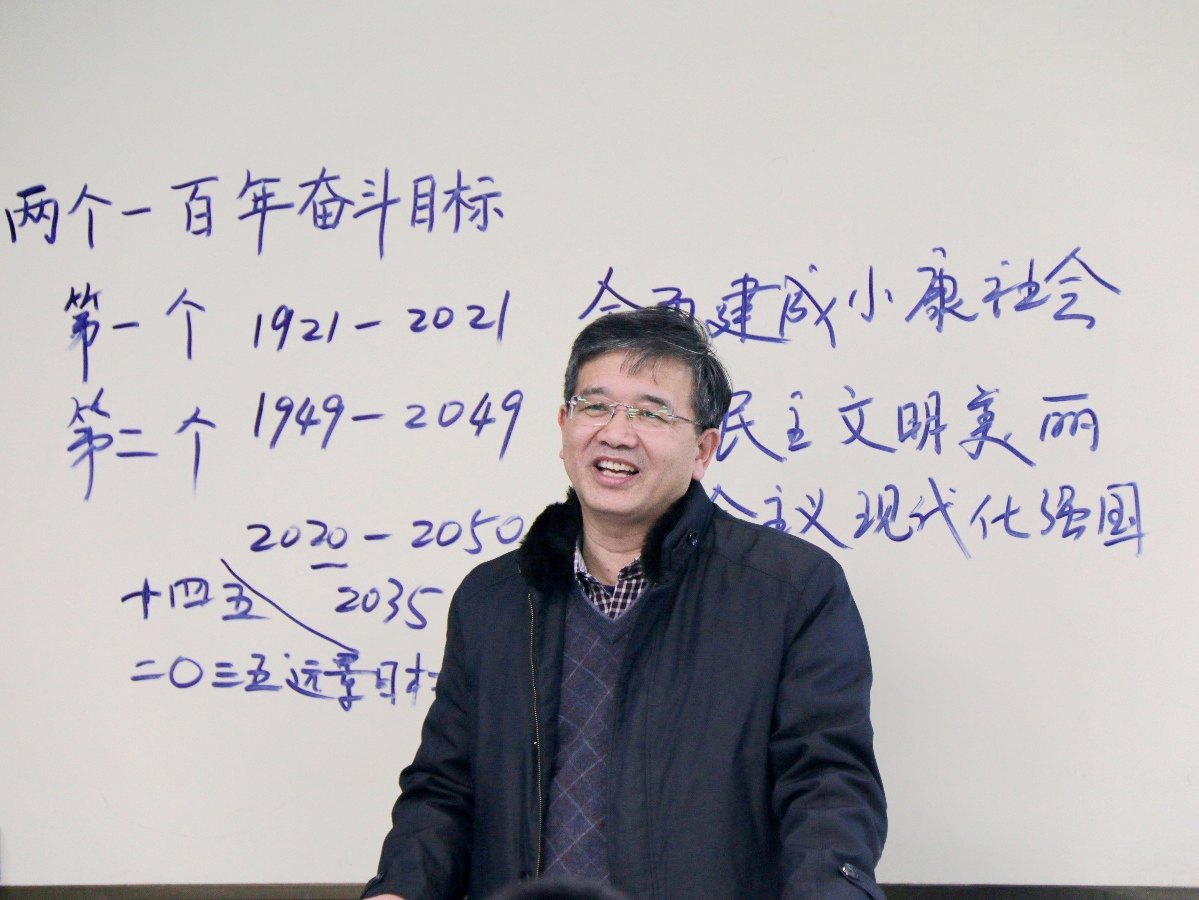 两个一百年奋斗目标
第一个 1921-2021 全面建成小康社会
第二个 1949-2049 民主文明美丽
主义现代化强国
2020-2050
十四五 2035
二〇三五远景目标